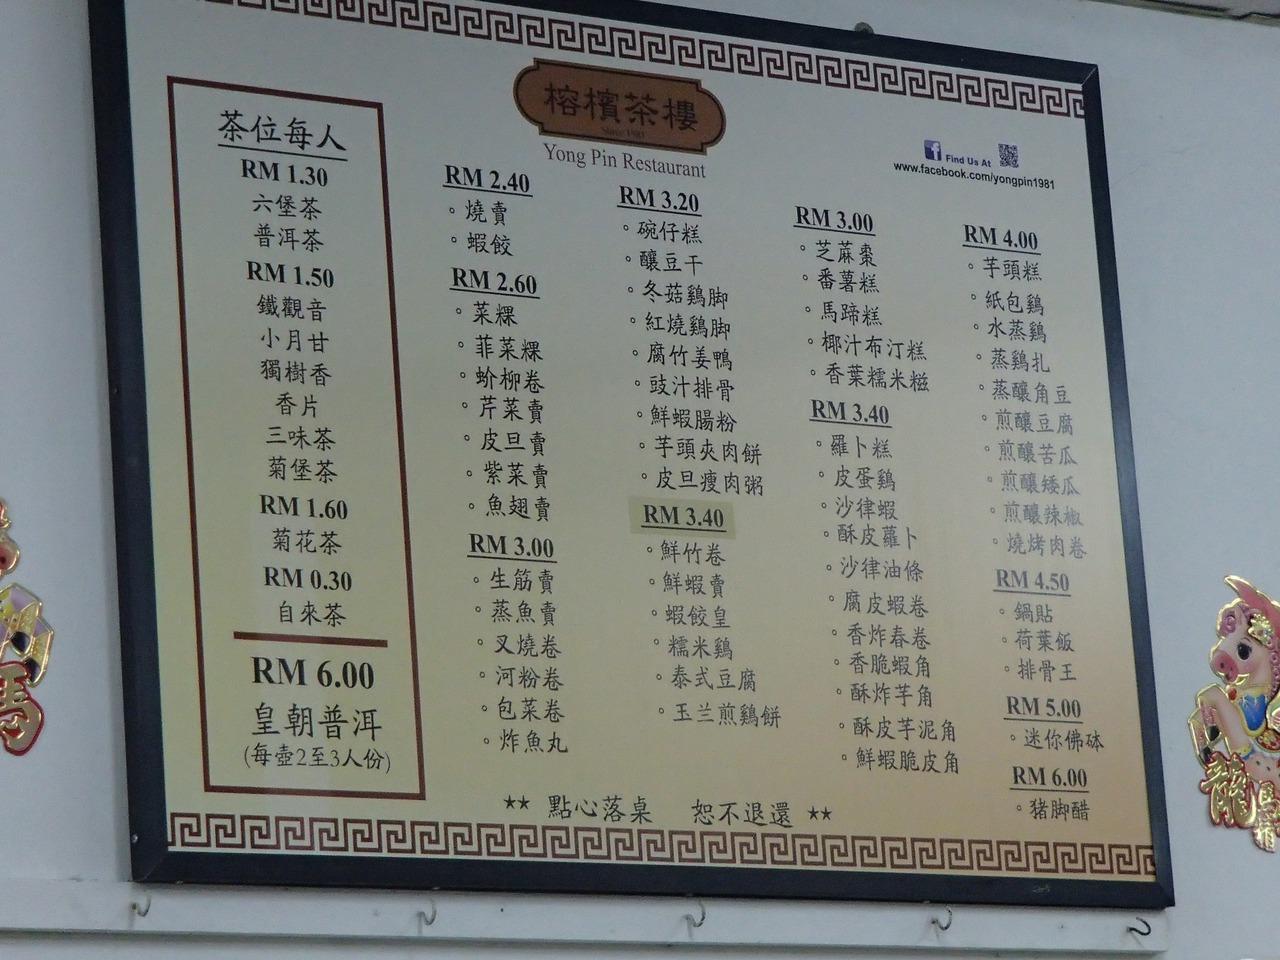 榕檳茶樓
Since 1981
Yong Pin Restaurant
Find Us At
www.facebook.com/yongpin1981
茶位每人
RM 1.30
六堡茶
普洱茶
RM 1.50
鐵觀音
小月甘
獨樹香
香片
三味茶
菊堡茶
RM 1.60
菊花茶
RM 0.30
自來茶
RM 6.00
皇朝普洱
(每壺2至3人份)
RM 2.40
。燒賣
。蝦餃
RM 2.60
。菜粿
。菲菜粿
。蚧柳卷
。芹菜賣
。皮旦賣
。紫菜賣
。魚翅賣
RM 3.00
。生筋賣
。蒸魚賣
。叉燒卷
。河粉卷
。包菜卷
。炸魚丸
RM 3.20
。碗仔糕
。釀豆干
。冬菇鷄脚
。紅燒鷄脚
。腐竹姜鴨
。豉汁排骨
。鮮蝦腸粉
。芋頭夾肉餅
。皮旦瘦肉粥
RM 3.40
。鮮竹卷
。鮮蝦賣
。蝦餃皇
。糯米鷄
。泰式豆腐
。玉兰煎鷄餅
RM 3.00
。芝蔴棗
。番薯糕
。馬蹄糕
。椰汁布汀糕
。香葉糯米糍
RM 3.40
。羅卜糕
。皮蛋鷄
。沙律蝦
。酥皮蘿卜
。沙律油條
。腐皮蝦卷
。香炸春卷
。香脆蝦角
。酥炸芋角
。酥皮芋泥角
。鮮蝦脆皮角
RM 4.00
。芋頭糕
。紙包鷄
。水蒸鷄
。蒸鷄扎
。蒸釀角豆
。煎釀豆腐
。煎釀苦瓜
。煎釀矮瓜
。煎釀辣椒
。燒烤肉卷
RM 4.50
。鍋貼
。荷葉飯
。排骨王
RM 5.00
。迷你佛砵
RM 6.00
。猪脚醋
** 點心落桌 恕不退還 **
馬
龍